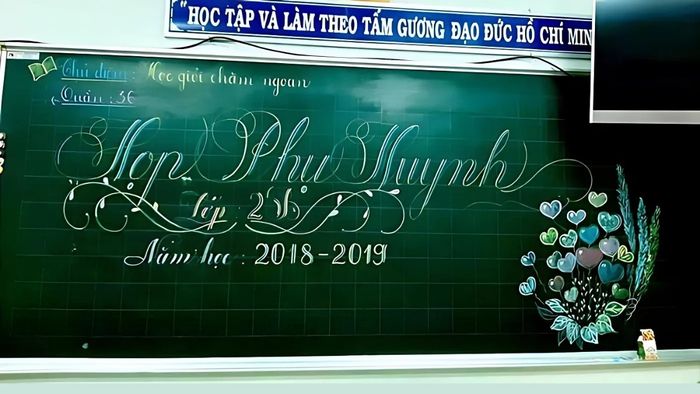 "HỌC TẬP VÀ LÀM THEO TẤM GƯƠNG ĐẠO ĐỨC HỒ CHÍ MIN
Chủ điểm: Học giỏi chăm ngoan
Tuần: 36
Họp Phụ Huynh
Lớp: 2
Năm học: 2018-2019